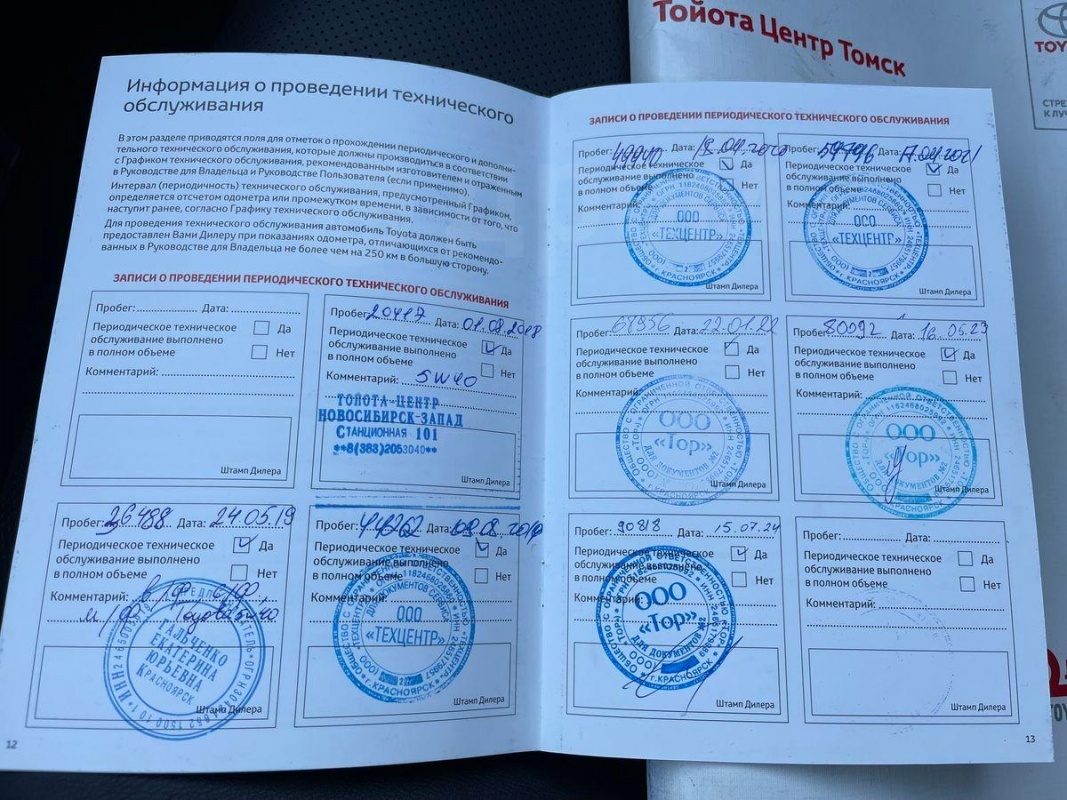 Тойота Центр Томск
TOYO
СТРЕ
К ЛУЧ
Информация о проведении технического
обслуживания
В этом разделе приводятся поля для отметок о прохождении периодического и дополни-
тельного технического обслуживания, которые должны производиться в соответствии
с Графиком технического обслуживания, рекомендованным изготовителем и отраженным
в Руководстве для Владельца и Руководстве Пользователя (если применимо).
Интервал (периодичность) технического обслуживания, предусмотренный Графиком,
определяется отсчетом одометра или промежутком времени, в зависимости от того, что
наступит ранее, согласно Графику технического обслуживания.
Для проведения технического обслуживания автомобиль Toyota должен быть
предоставлен Вами Дилеру при показаниях одометра, отличающихся от рекомендо-
ванных в Руководстве для Владельца не более чем на 250 км в большую сторону.
ЗАПИСИ О ПРОВЕДЕНИИ ПЕРИОДИЧЕСКОГО ТЕХНИЧЕСКОГО ОБСЛУЖИВАНИЯ
Пробег: Дата:
Периодическое техническое
обслуживание выполнено
в полном объеме
Да
Нет
Комментарий:
Штамп Дилера
Пробег: 20417 Дата: 01.08.2018
Периодическое техническое
обслуживание выполнено
в полном объеме
Да
Нет
Комментарий: 5W40
ТОЙОТА-ЦЕНТР
НОВОСИБИРСК-ЗАПАД
СТАНЦИОННАЯ 101
**8(383)2053040**
Штамп Дилера
Пробег: 36488 Дата: 24.05.19
Периодическое техническое
обслуживание выполнено
в полном объеме
Да
Нет
Комментарий: в/ф с/ф
м/ф
ГАЛАЧЕНКО
ЕКАТЕРИНА
ЮРЬЕВНА
КРАСНОЯРСК
Штамп Дилера
Пробег: 44262 Дата:
Периодическое техническое
обслуживание выполнено
в полном объеме
Да
Нет
Комментарий:
ООО
«ТЕХЦЕНТР»
г. КРАСНОЯРСК
Штамп Дилера
12
ЗАПИСИ О ПРОВЕДЕНИИ ПЕРИОДИЧЕСКОГО ТЕХНИЧЕСКОГО ОБСЛУЖИВАНИЯ
Пробег: Дата:
Периодическое техническое
обслуживание выполнено
в полном объеме
Да
Нет
Комментарий:
ООО
«ТЕХЦЕНТР»
г. КРАСНОЯРСК
Штамп Дилера
Пробег: 59796 17.04.2021
Периодическое техническое
обслуживание выполнено
в полном объеме
Да
Нет
Комментарий:
ООО
«ТЕХЦЕНТР»
г. КРАСНОЯРСК
Штамп Дилера
Пробег: Дата: 22.01.22
Периодическое техническое
обслуживание выполнено
в полном объеме
Да
Нет
Комментарий:
ООО
«Тор»
ДЛЯ ДОКУМЕНТОВ №2
г. КРАСНОЯРСК
Штамп Дилера
Пробег: 80092 16.05.23
Периодическое техническое
обслуживание выполнено
в полном объеме
Да
Нет
Комментарий:
ООО
«Тор»
ДЛЯ ДОКУМЕНТОВ №2
г. КРАСНОЯРСК
Штамп Дилера
Пробег: 90818 15.07.24
Периодическое техническое
обслуживание выполнено
в полном объеме
Да
Нет
Комментарий:
ООО
«Тор»
ДЛЯ ДОКУМЕНТОВ №2
г. КРАСНОЯРСК
Штамп Дилера
Пробег: Дата:
Периодическое техническое
обслуживание выполнено
в полном объеме
Да
Нет
Комментарий:
Штамп Дилера
13